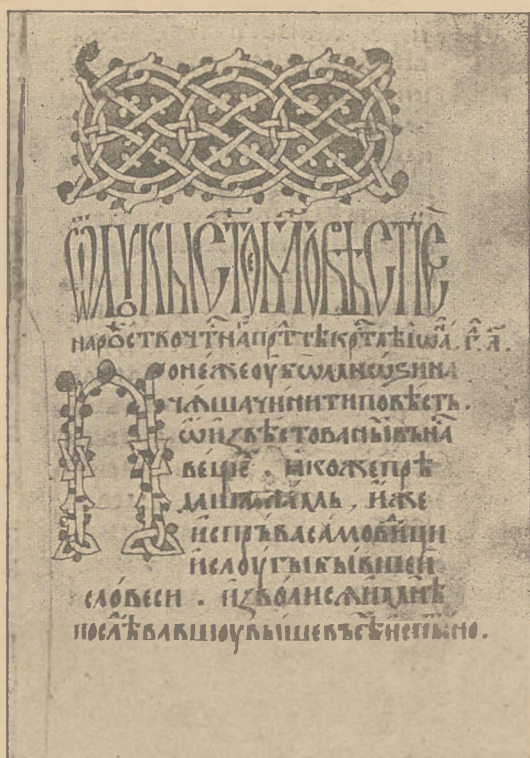 ѿ лꙋкы ст҃ое бл҃говѣстїе
на рⷪ҇ство чтⷭ҇наго прⷣтечѣ крⷭ҇тлѣ іѡⷩ҇а. гл҃а. а҃.
Понеже оубѡ мнѡѕи на
чѧша чинити повѣсть.
ѡ извѣстованыⷯ въ на
вещеⷯ. ꙗкоже прѣ
даша намь, иже
испръва самовиⷣци
и слоугы бывшеи
словеси. изволисѧ и мнѣ
послѣⷣвавшоу выше въсѣⷨ